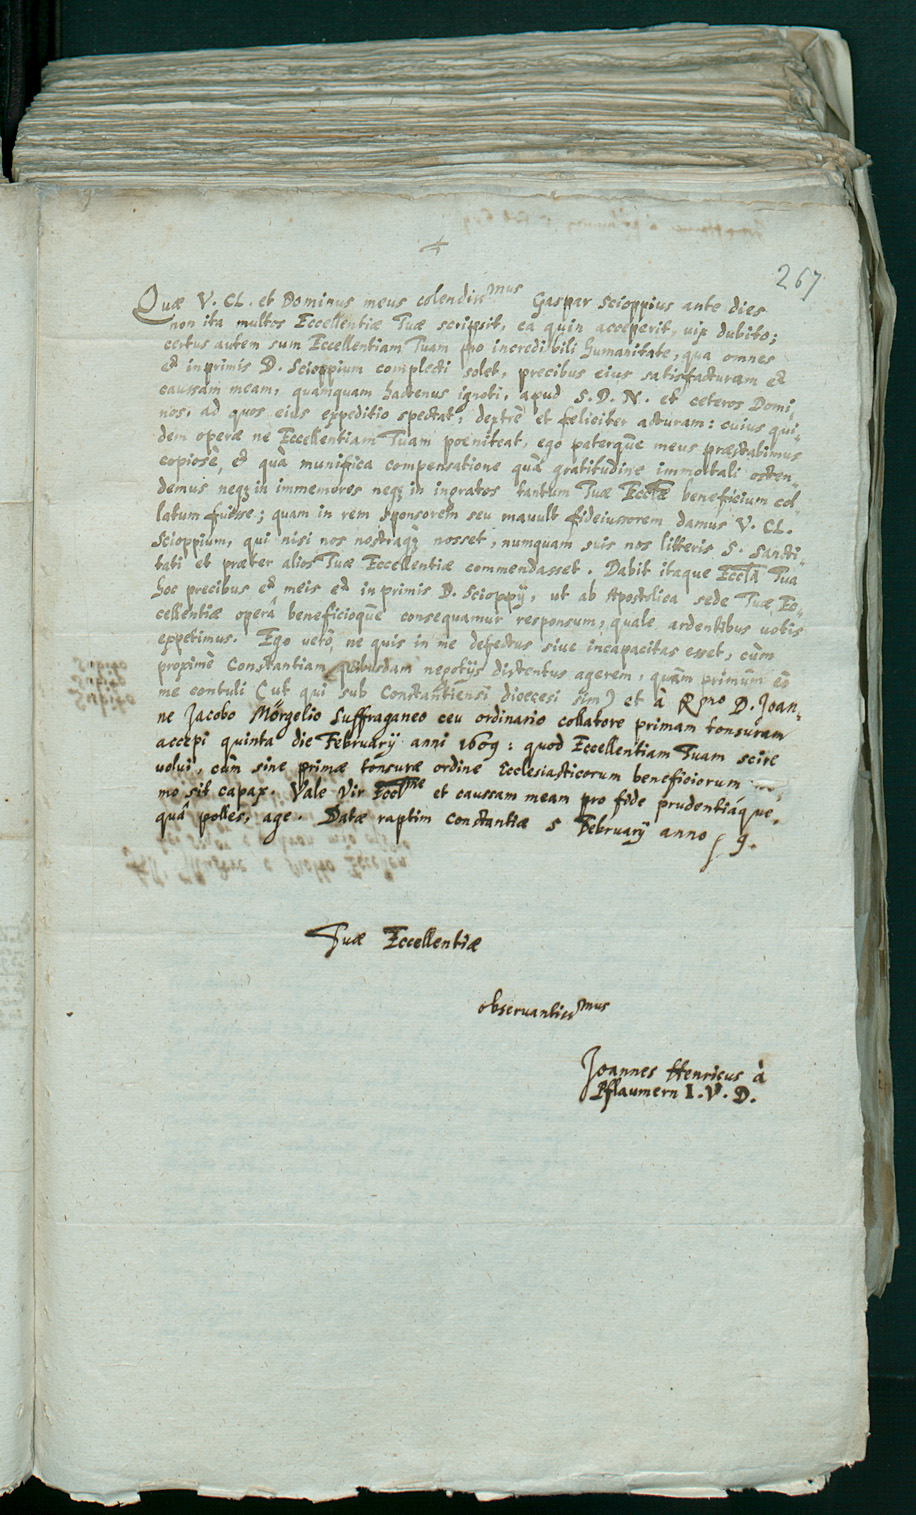 267
Quæ V. CL. et Dominus meus colendissmus Gaspar Scioppius ante dies
non ita multos Eccellentiæ Tuæ scripsit, ea quin acceperit, vix dubito;
certus autem sum Eccellentiam Tuam pro incredibili humanitate, qua omnes
et inprimis D. Scioppium complecti solet, precibus eius satisfacturam et
caussam meam, quamquam hactenus ignoti, apud S. D. N. et ceteros Domi,,
nos, ad quos eius expeditio spectat, dextrè et feliciter acturam: cuius qui,,
dem operæ ne Eccellentiam Tuam poeniteat, ego paterque meus præstabimus
copiosè, et quà munifica compensatione quà gratitudine immortali osten,,
demus neqȝ in immemores neqȝ in ingratos tantum Tuæ Eccłæ beneficium col,,
latum fuisse; quam in rem sponsorem seu mauult fideiussorem damus V. CL.
Scioppium, qui nisi nos nostraqȝ nosset, numquam suis nos litteris S. Sancti,,
tati et præter alios Tuæ Eccellentiæ commendasset. Dabit itaque Eccła Tua
hoc precibus et meis et inprimis D. Scioppij, ut ab Apostolica sede Tuæ Ec,,
cellentiæ operâ beneficioque consequamur responsum, quale ardentibus votis
expetimus. Ego vero, ne quis in me defectus siue incapacitas esset, cùm
proximè Constantiam quibusdam negotijs distentus agerem, quàm primùm eò
me contuli (ut qui sub Constantiensi dioecesi sim) et à Rmo D. Joan,,
ne Jacobo Mörgelio Suffraganeo ceu ordinario collatore primam tonsuram
accepi quinta die Februarij anni 1609: quod Eccellentiam Tuam scire
volui, cùm sine primæ tonsuræ ordine Ecclesiasticorum beneficiorum
mo sit capax. Vale Vir Eccłme et caussam meam pro fide prudentiáque,
quâ polles, age. Datæ raptim Constantiæ 5 Februarij anno 9.
Subito
Subito
Subito
Tuæ Eccellentiæ
obseruantissmus
Joannes Henricus à
Pflaumern I. V. D.